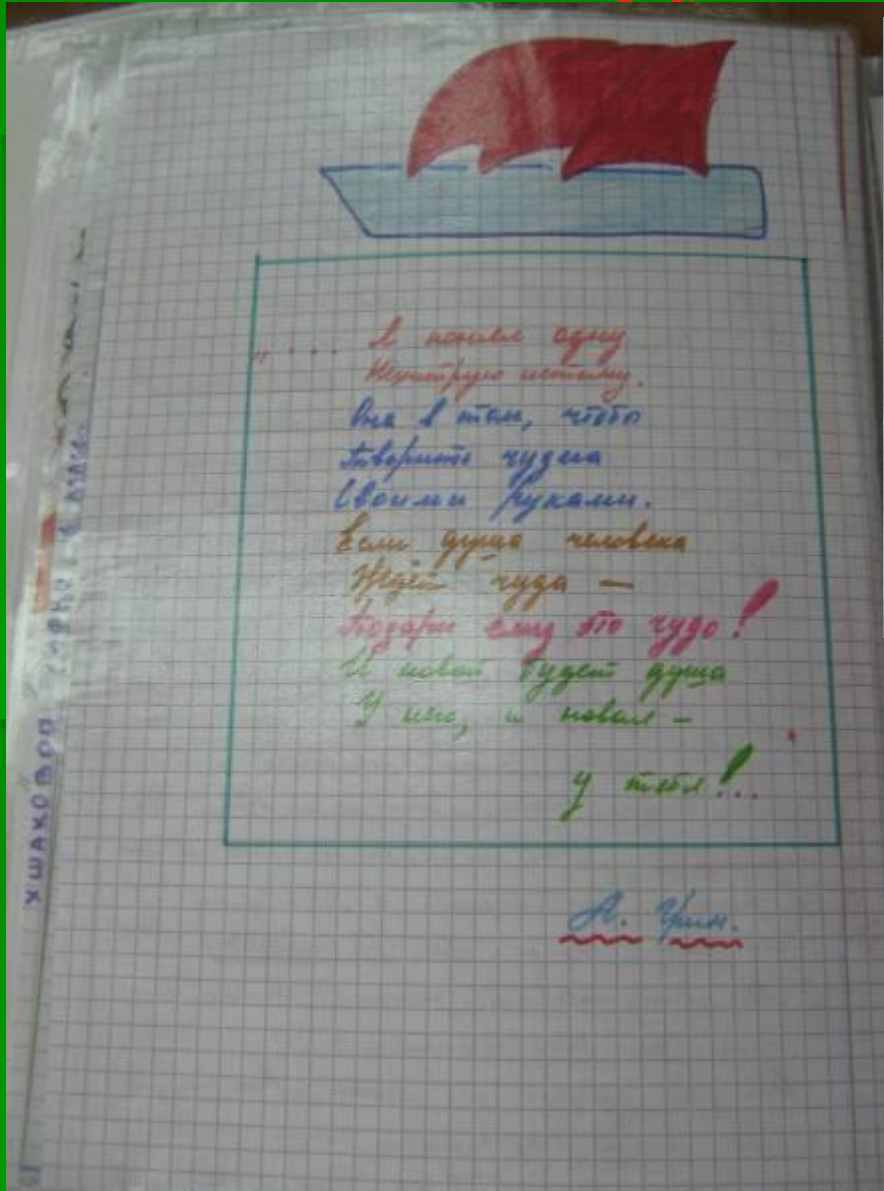 „.... Я понял одну
Нехитрую истину.
Она в том, чтобы
Творить чудеса
Своими руками.
Если душа человека
Ждёт чуда —
Подари ему это чудо!
И новой будет душа
У него, и новая —
У тебя!..
А. Грин.